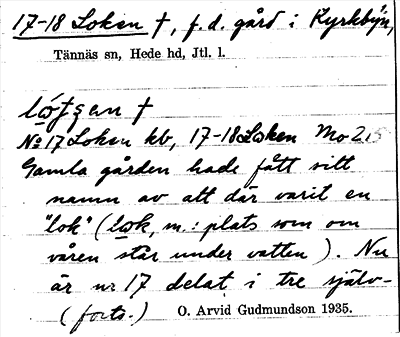 17-18 Loken †, f.d. gård i Kyrkbyn,
Tännäs sn, Hede hd, Jtl. l.
†
No 17 Loken kb, 17-18 Loken Mo 215
Gamla gården hade fått sitt
namn av att där varit en
"lok" (lok, m.: plats som om
våren står under vatten). Nu
är nr 17 delat i tre själv-
(forts.) O. Arvid Gudmundson 1935.